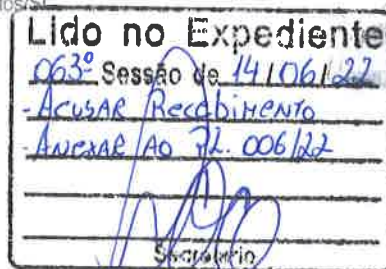 Lido no Expediente
063º Sessão de 14/06/22
- ACUSAR RECEBIMENTO
- ANEXAR AO PL. 006/22
Secretário